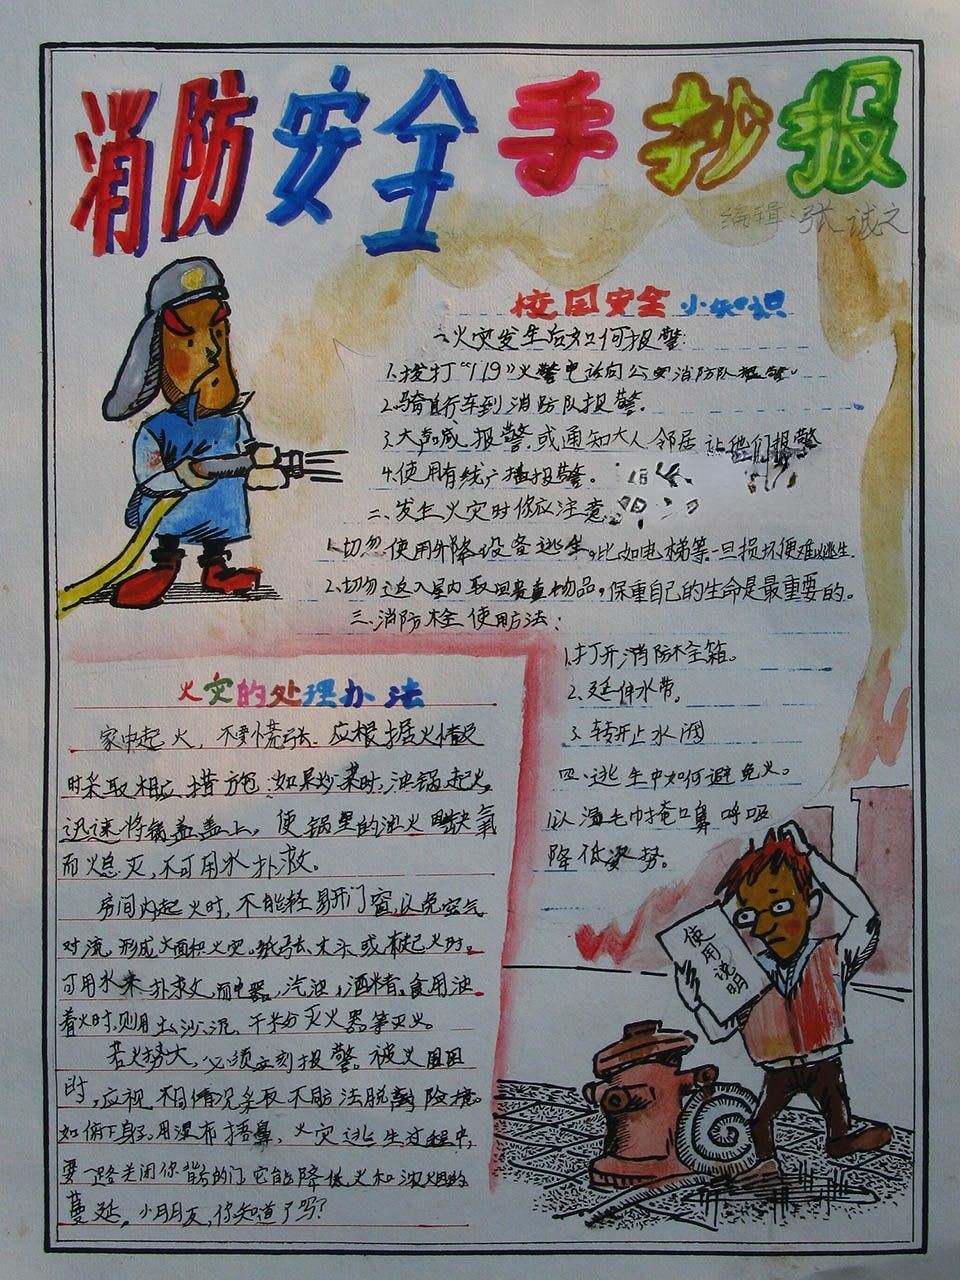 消防安全手抄报
编辑：张诚文
校园安全小知识
一.火灾发生后如何报警：
1.拨打“119”火警电话向公安消防队报警。
2.骑自行车到消防队报警。
3.大声喊报警，或通知大人邻居让他们报警
4.使用有线广播报警。
二、发生火灾时你应注意
1.切忽使用升降设备逃生。比如电梯等一旦损坏便难以逃生.
2.切勿返入室内取回贵重物品，保重自己的生命是最重要的。
三.消防栓使用方法：
1.打开消防栓箱。
2.延伸水带。
3.转开止水阀
四.逃生中如何避免火。
以湿毛巾掩口鼻呼吸
降低姿势。
使用
说明
火灾的处理办法
家中起火，不要慌张.应根据火情及
时采取相应措施：如果炒菜时，油锅起火，
迅速将锅盖盖上，使锅里的油火因缺氧
而熄灭，不可用水扑救。
房间内起火时，不能轻易开门窗，以免空气
对流，形成大面积火灾。纸张、木头或棉起火时，
可用水来扑救，而电器，汽油，酒精，食用油
着火时，则用土、沙、泥、干粉灭火器等灭火。
若火势大，必须立刻报警。被火围困
时，应视不同情况采取不同方法脱离险境。
如俯下身子。用湿布捂鼻，火灾逃生过程中，
要一路关闭你背后的门，它能降低火和浓烟的
蔓延，小朋友，你知道了吗？